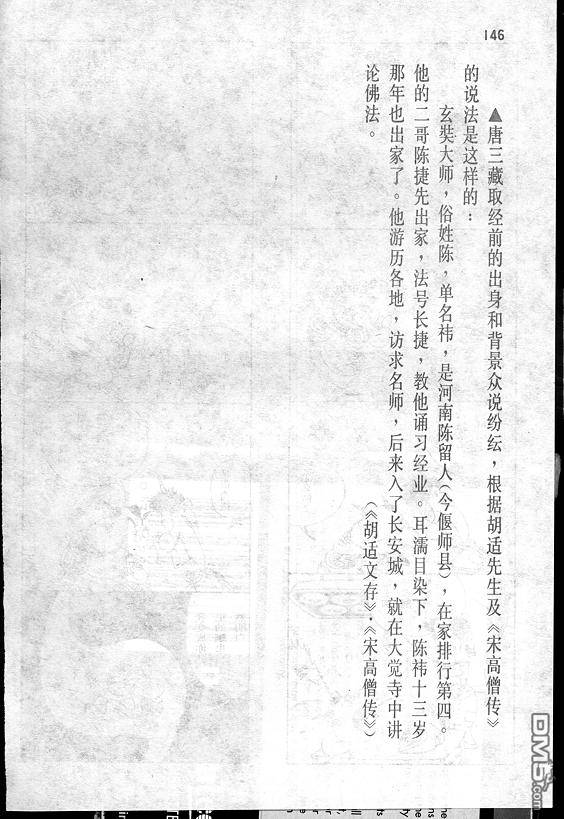 146
▲唐三藏取经前的出身和背景众说纷纭，根据胡适先生及《宋高僧传》
的说法是这样的：
玄奘大师，俗姓陈，单名祎，是河南陈留人(今偃师县)，在家排行第四。
他的二哥陈捷先出家，法号长捷，教他诵习经业。耳濡目染下，陈祎十三岁
那年也出家了。他游历各地，访求名师，后来入了长安城，就在大觉寺中讲
论佛法。
(《胡适文存》·《宋高僧传》)
DM5.com